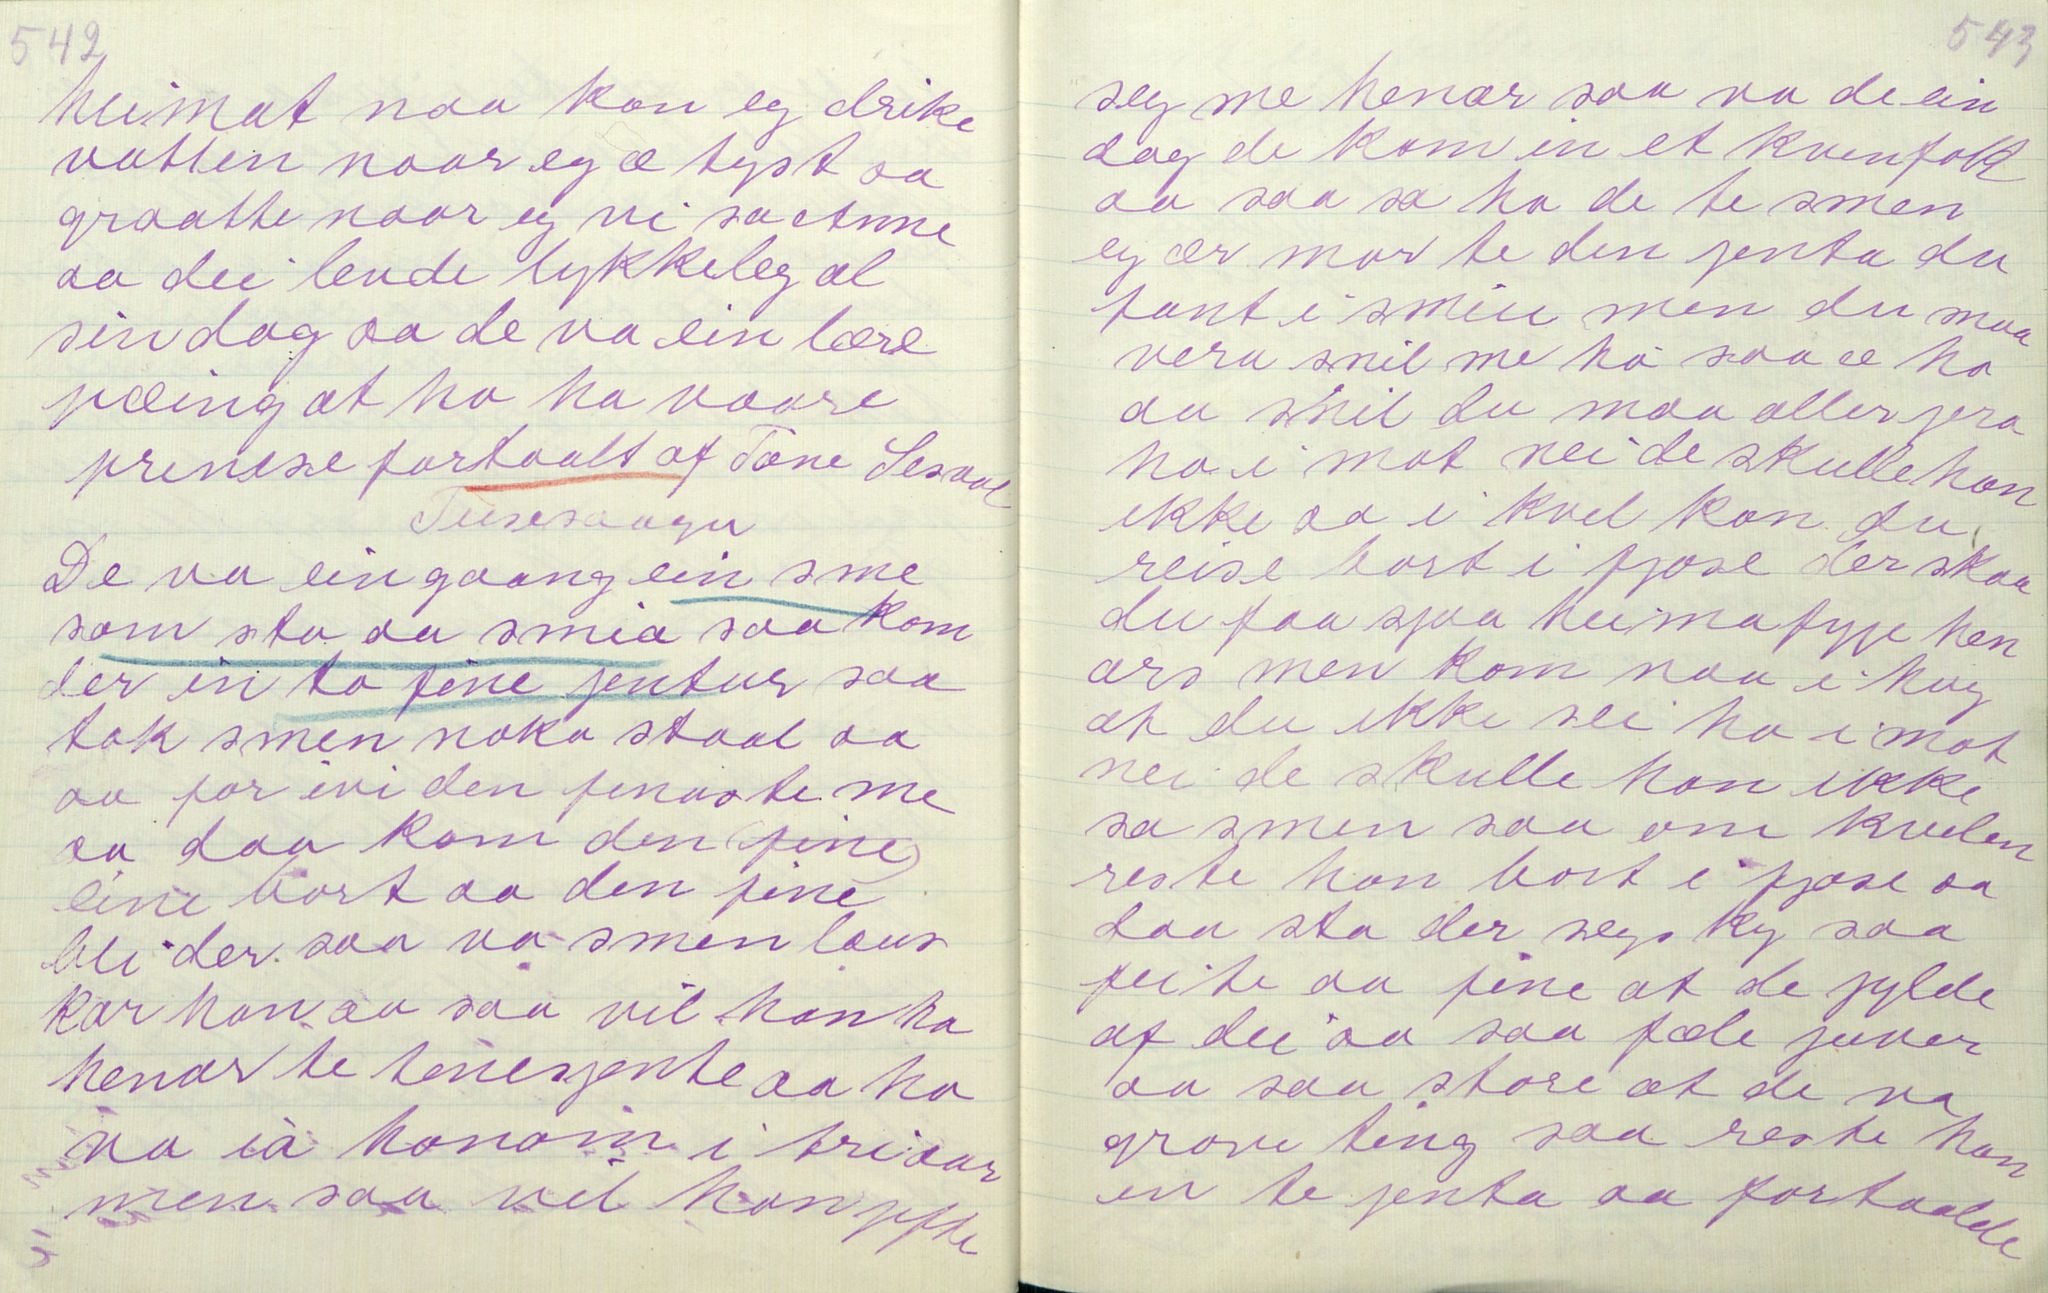 542
heimat naa kan eg drike
vatten naar eg æ tyst aa
graatte naar eg vi sa
aa dei levde lykkeleg al
sin dag aa de va ein lærl
pæing at ho ha vaare
prinsese fortaalt af Tone Lesaal
Tusesaagu
De va ein gaang ein sme
som sto aa smia saa kom
der in to fine jentur saa
tok smen noko staal aa
aa for ivi den finaste me
aa daa kom den fine
eine bort aa den fine
blei der saa va smen laus
kar han aa saa vil han ha
henar te tenesjente aa ho
va ia honom i tri aar
men saa vil han jifte
543
seg me henar saa va de ein
dag de kom in et kvenfolk
aa saa sa ho de te smen
eg ær mor te den jenta du
fant i smiu men du maa
vera snil me ho saa æ ho
au snil du maa aller jera
ho i mot nei de skulle han
ikke aa i kvel kan du
reise bort i fjøse der skaa
du faa sjaa heimafyje hen
ars men kom naa i hug
at du ikke sei ho i mot
nei de skulle han ikke
sa smen saa om kvelen
reste han bort i fjøse aa
daa sto der segs ky saa
feite aa fine at de jylde
af dei aa saa fæle juver
aa saa store at de va
grove ting saa reste han
in te jenta aa fortaalde